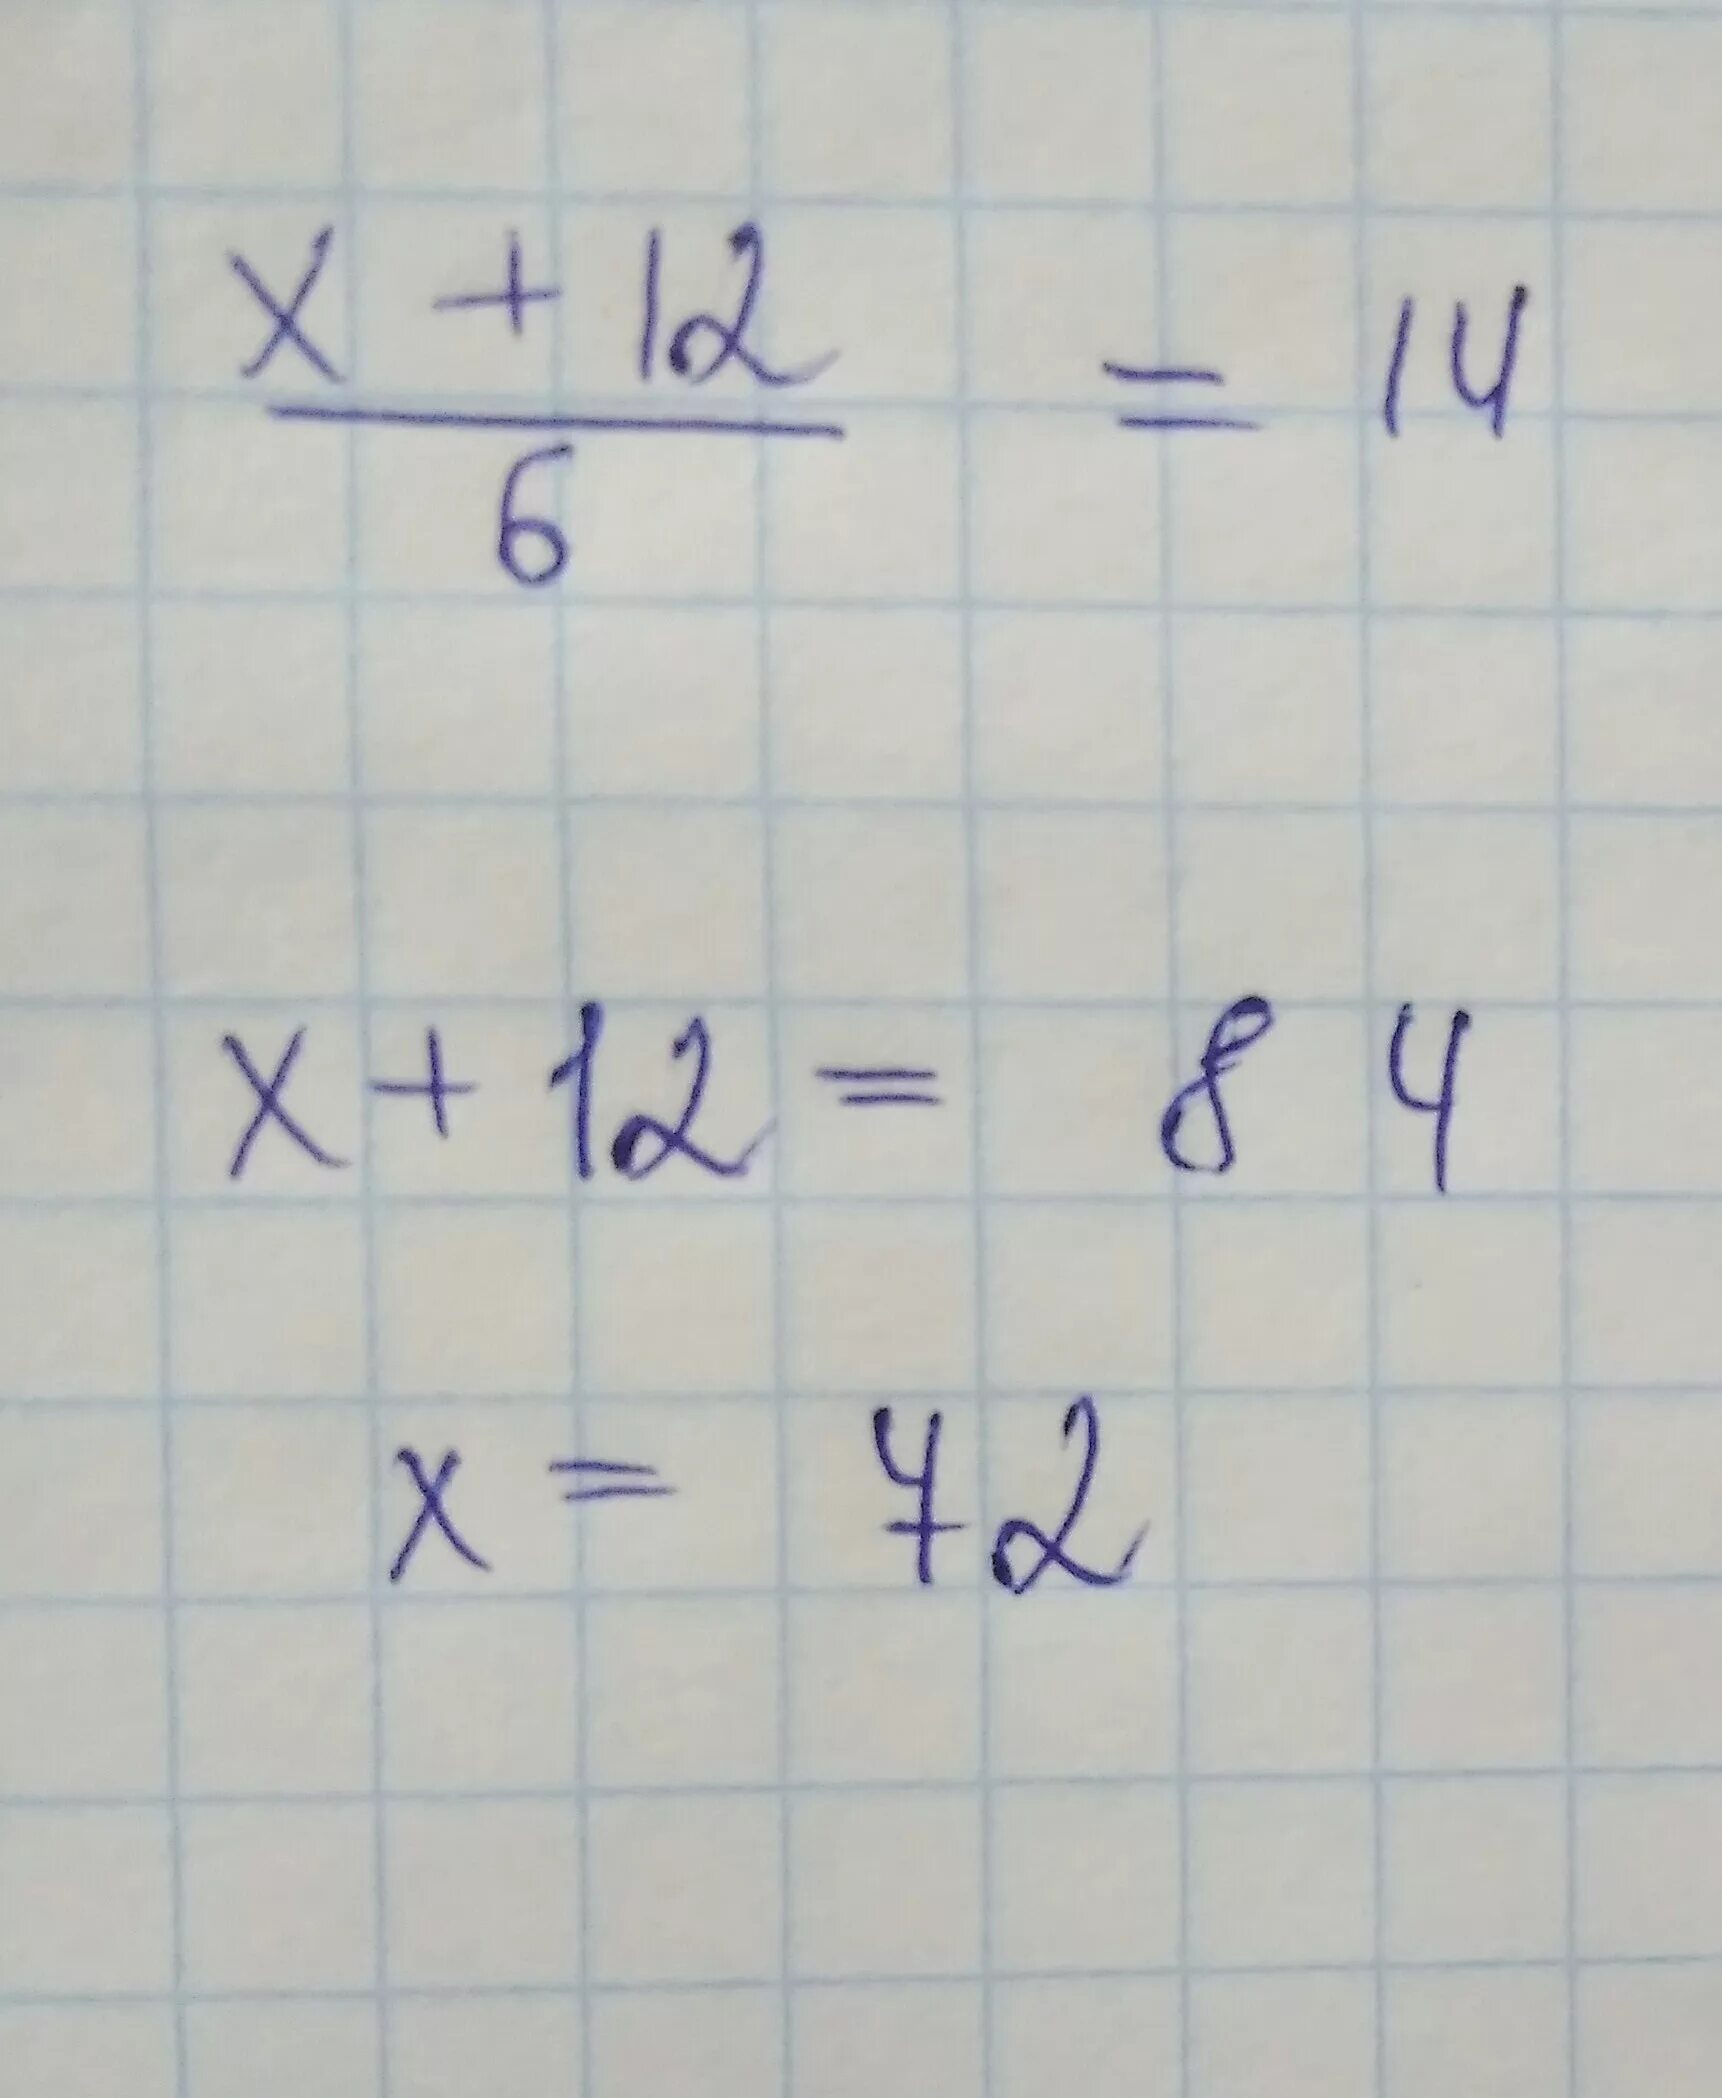 x + 12 = 14
6
x + 12 = 84
x = 72